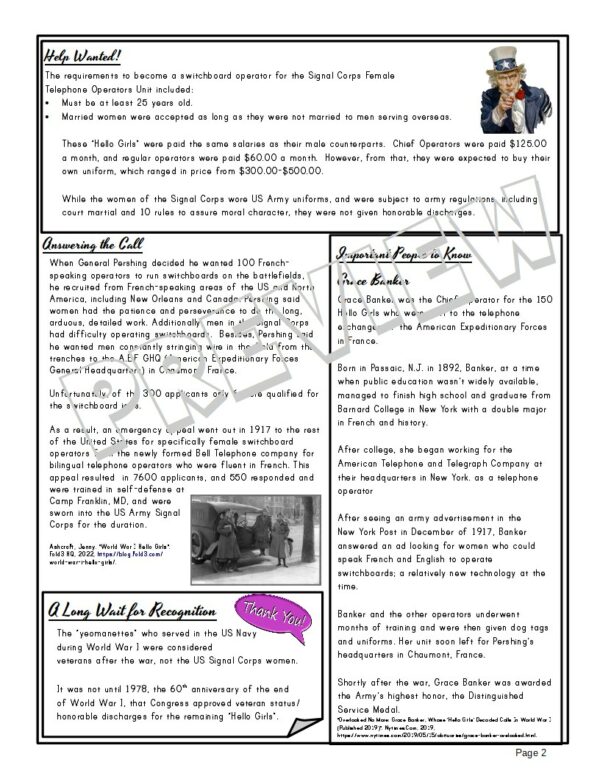 Help Wanted!
The requirements to become a switchboard operator for the Signal Corps Female
Telephone Operators Unit included:
• Must be at least 25 years old.
• Married women were accepted as long as they were not married to men serving overseas.
These "Hello Girls" were paid the same salaries as their male counterparts. Chief Operators were paid $125.00
a month, and regular operators were paid $60.00 a month. However, from that, they were expected to buy their
own uniform, which ranged in price from $300.00-$500.00.
While the women of the Signal Corps wore US Army uniforms, and were subject to army regulations, including
court martial and 10 rules to assure moral character, they were not given honorable discharges.
Answering the Call
When General Pershing decided he wanted 100 French-
speaking operators to run switchboards on the battlefields,
he recruited from French-speaking areas of the US and North
America, including New Orleans and Canada. Pershing said
women had the patience and perseverance to do the long,
arduous, detailed work. Additionally, men in the Signal Corps
had difficulty operating switchboards. Besides, Pershing said
he wanted men constantly stringing wire in the field from the
trenches to the A.E.F GHQ (American Expeditionary Forces
General Headquarters) in Chaumont, France.
Unfortunately, of the 300 applicants only were qualified for
the switchboard jobs.
As a result, an emergency appeal went out in 1917 to the rest
of the United States for specifically female switchboard
operators from the newly formed Bell Telephone company for
bilingual telephone operators who were fluent in French. This
appeal resulted in 7600 applicants, and 550 responded and
were trained in self-defense at
Camp Franklin, MD, and were
sworn into the US Army Signal
Corps for the duration.
Ashcroft, Jenny. "World War I Hello Girls".
Fold3 HQ, 2022, https://blog.fold3.com/
world-war-i-hello-girls/.
A Long Wait for Recognition
Thank You!
The "yeomanettes" who served in the US Navy
during World War I were considered
veterans after the war, not the US Signal Corps women.
It was not until 1978, the 60th anniversary of the end
of World War I, that Congress approved veteran status/
honorable discharges for the remaining "Hello Girls".
Important People to Know
Grace Banker
Grace Banker was the Chief Operator for the 150
Hello Girls who were sent to the telephone
exchange of the American Expeditionary Forces
in France.
Born in Passaic, N.J. in 1892, Banker, at a time
when public education wasn't widely available,
managed to finish high school and graduate from
Barnard College in New York with a double major
in French and history.
After college, she began working for the
American Telephone and Telegraph Company at
their headquarters in New York. as a telephone
operator
After seeing an army advertisement in the
New York Post in December of 1917, Banker
answered an ad looking for women who could
speak French and English to operate
switchboards; a relatively new technology at the
time.
Banker and the other operators underwent
months of training and were then given dog tags
and uniforms. Her unit soon left for Pershing's
headquarters in Chaumont, France.
Shortly after the war, Grace Banker was awarded
the Army's highest honor, the Distinguished
Service Medal.
"Overlooked No More: Grace Banker, Whose 'Hello Girls' Decoded Calls In World War I
(Published 2019)". Nytimes.Com, 2019,
https://www.nytimes.com/2019/05/15/obituaries/grace-banker-overlooked.html.
PREVIEW
Page 2